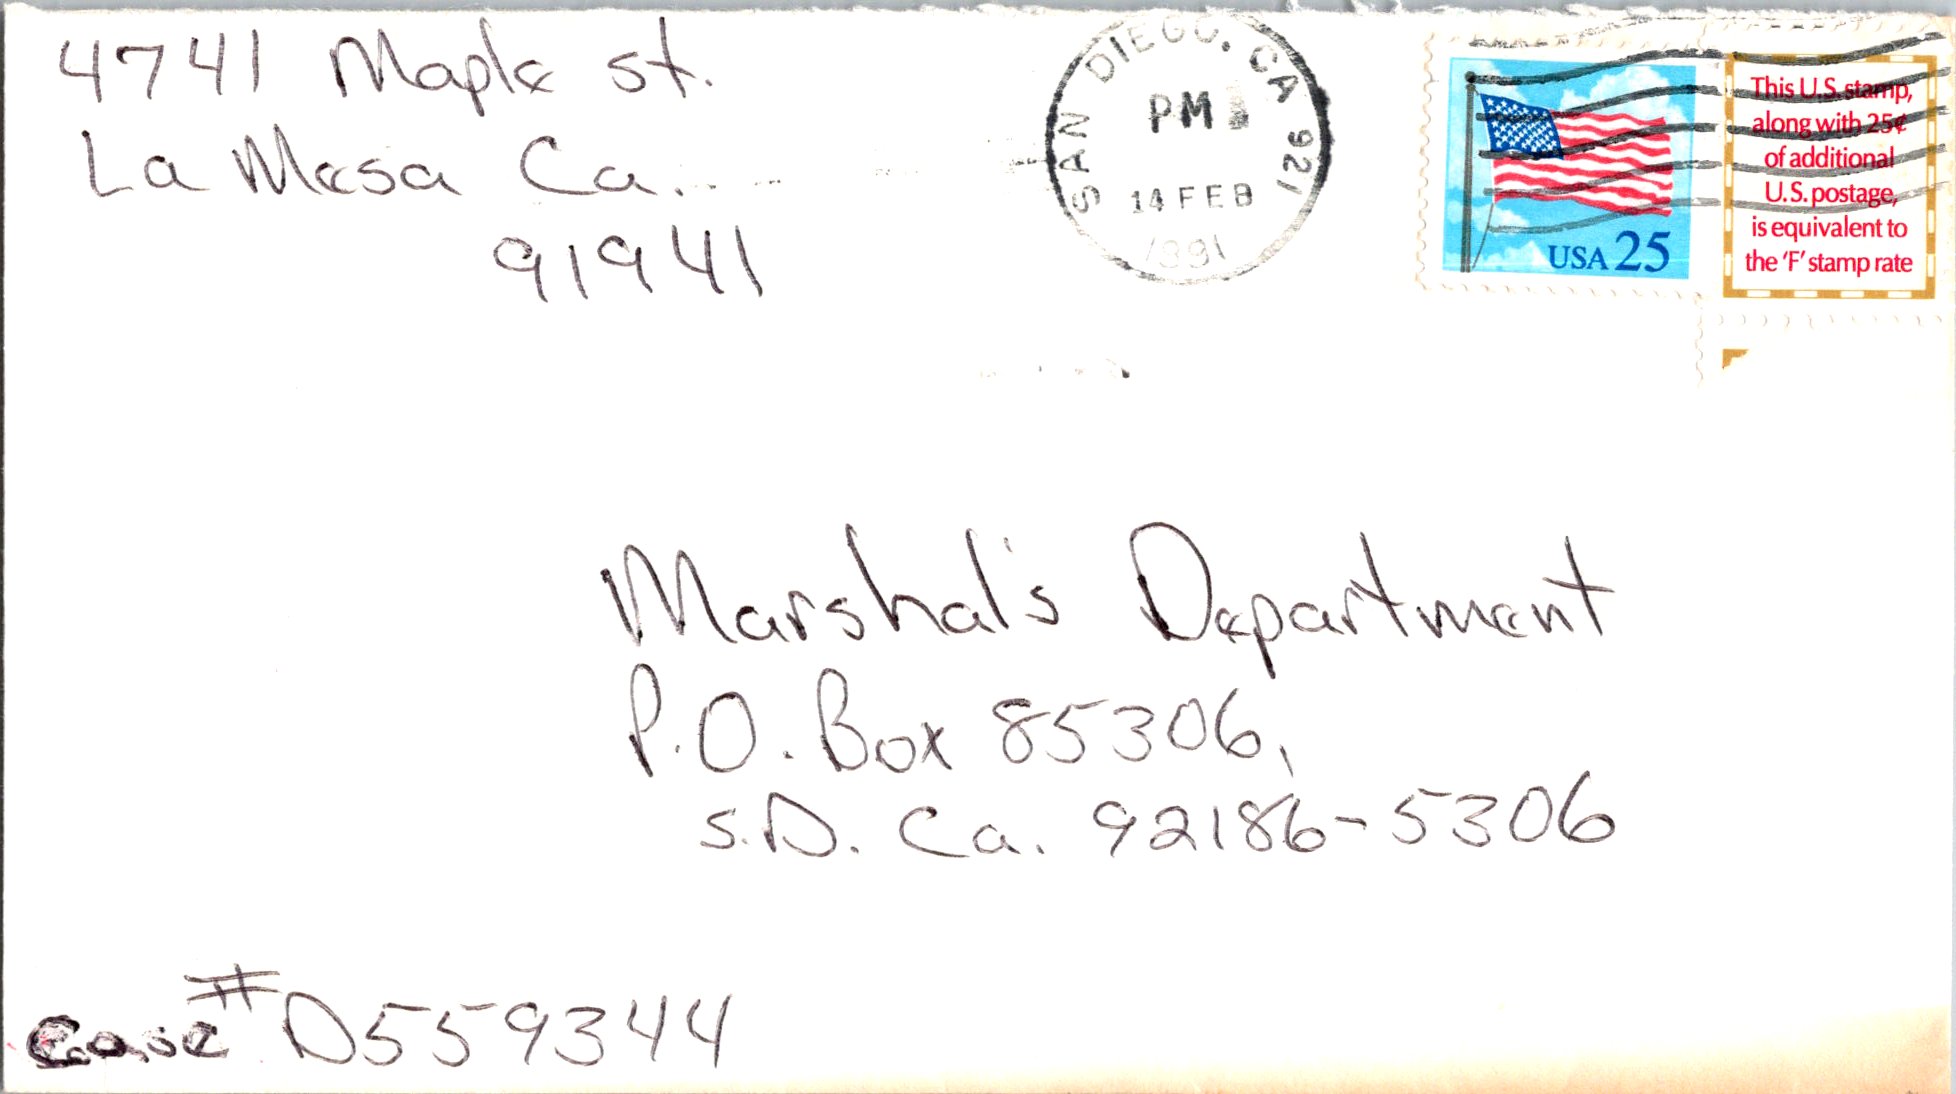 4741 Maple st.
La Mesa Ca.
91941
SAN DIEGO, CA 921
PM
14 FEB
1991
USA 25
This U.S. stamp,
along with 25¢
of additional
U.S. postage,
is equivalent to
the 'F' stamp rate
Marshal's Department
P.O. Box 85306,
S.D. Ca. 92186-5306
Case # D559344